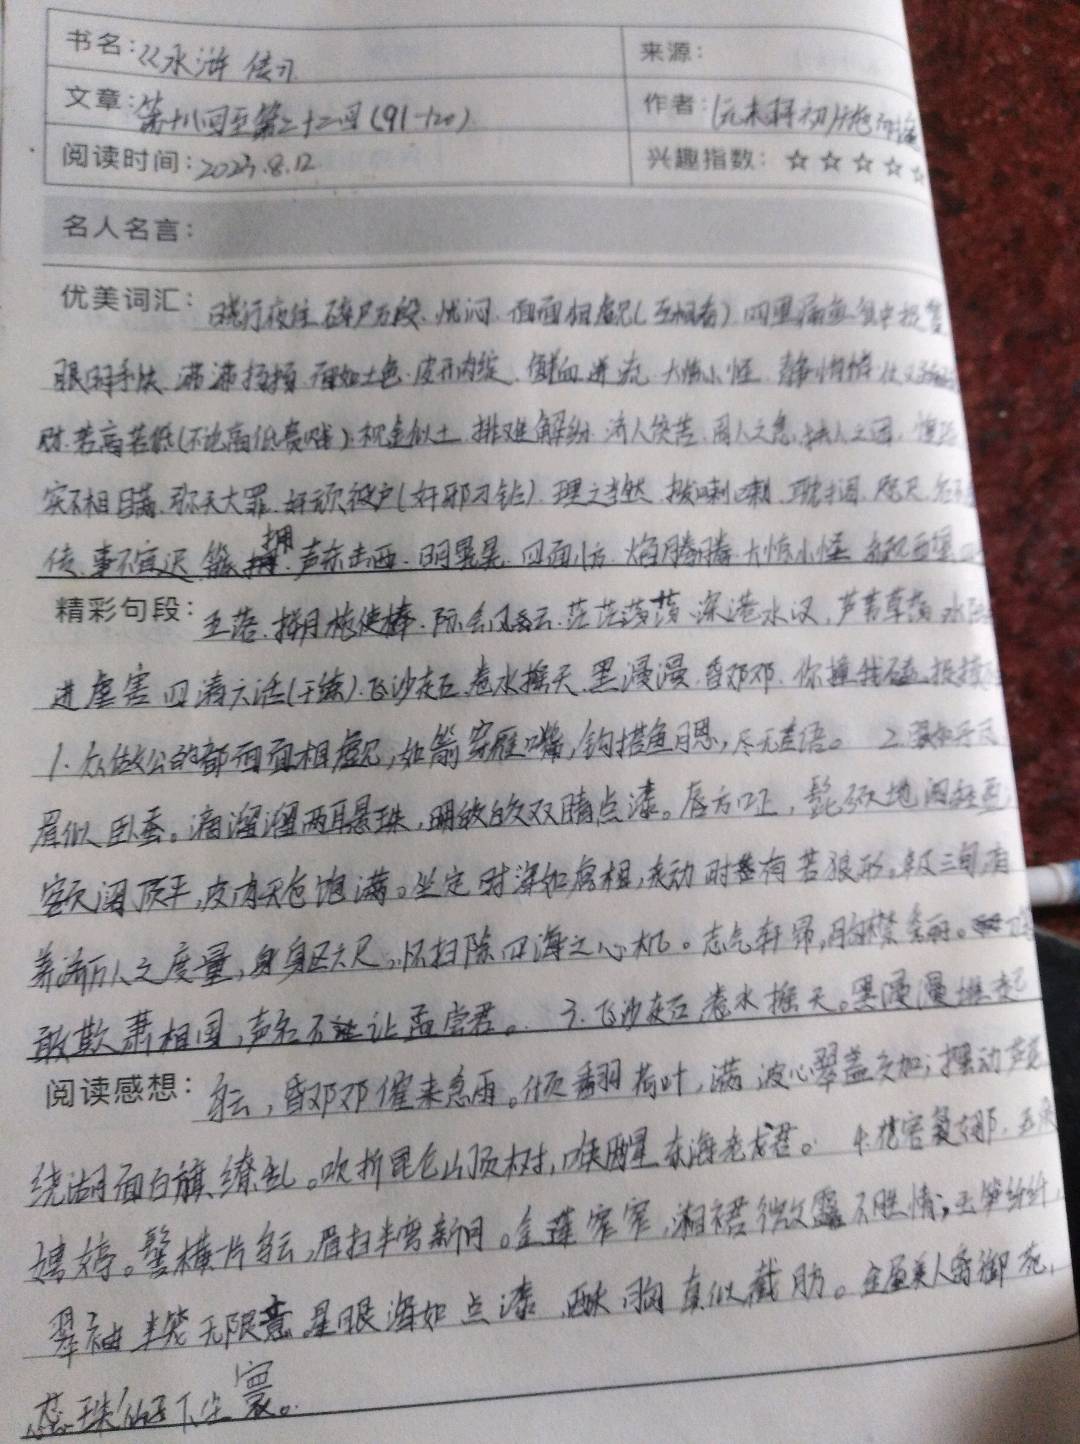 书名：《水浒传》 来源：
文章：第十八回至第二十二回(91-120) 作者：(元末明初)施耐庵
阅读时间：2023.8.12 兴趣指数：☆☆☆☆☆
名人名言：
优美词汇：晓行夜住 碎尸万段 忧闷 面面相觑(互相看)
眼明手快 面如土色 皮开肉绽 鲜血迸流 大惊小怪 静悄悄 仗义
财 若高若低 挥金似土 排难解纷 济人贫苦 周人之急 扶人之困
实不相瞒 弥天大罪 奸顽彼户(奸邪刁钻) 理之当然 拨喇喇 耽搁 咫尺
传 事不宜迟 簇拥 声东击西 明晃晃 四面八方 焰腾腾 大惊小怪
精彩句段：际会风云 茫茫荡荡 深港水汊，芦苇草荡
进 虐害 四清六活(干练) 飞沙走石 卷水摇天 黑漫漫 昏邓邓 你撞我磕
1. 众做公的都面面相觑，如箭穿雁嘴，钩搭鱼腮，尽无言语。 2.眼如丹凤
眉似卧蚕。滴溜溜两耳悬珠，明皎皎双睛点漆。唇方口正，髭须地阁轻盈，
额阔顶平，皮肉天仓饱满。坐定时浑如虎相，走动时有若狼形。年及三旬，有
养济万人之度量，身躯六尺，怀扫除四海之心机。志气轩昂，胸襟秀丽。
敢欺萧相国，声名不让孟尝君。 3.飞沙走石，卷水摇天。黑漫漫堆起
阅读感想：乌云，昏邓邓催来急雨。倾翻荷叶，满波心翠盖交加；摆动芦花
绕湖面白旗缭乱。吹折昆仑山顶树，唤醒东海老龙君。 4.花容袅娜，玉质
娉婷。髻横一片乌云，眉扫半弯新月。金莲窄窄，湘裙微露不胜情；玉笋纤纤，
翠袖半笼无限意。星眼浑如点漆，酥胸真似截肪。金屋美人离御苑，
蕊珠仙子下尘寰。